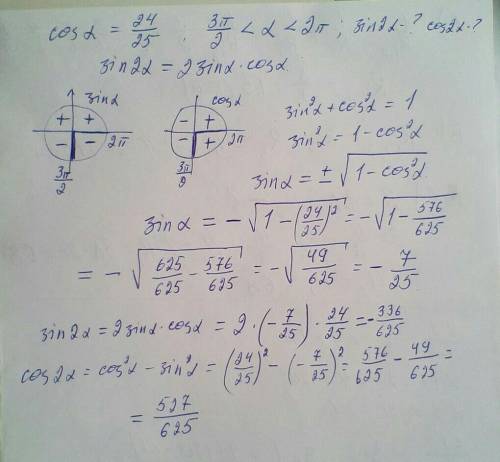 cosα = 24/25 ; 3π/2 < α < 2π ; sin2α-? cos2α-?
sin2α = 2sinα·cosα
sinα
+ +
- - 2π
3π/2
cosα
- +
- + 2π
3π/2
sin²α + cos²α = 1
sin²α = 1 - cos²α
sinα = ± √(1 - cos²α)
sinα = - √(1 - (24/25)²) = - √(1 - 576/625)
= - √(625/625 - 576/625) = - √(49/625) = - 7/25
sin2α = 2sinα·cosα = 2·(-7/25)·24/25 = -336/625
cos2α = cos²α - sin²α = (24/25)² - (-7/25)² = 576/625 - 49/625 =
= 527/625